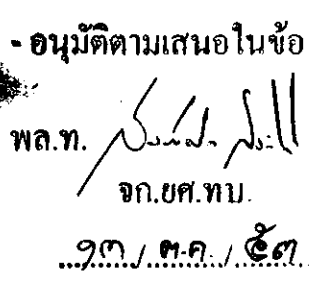 - อนุมัติตามเสนอในข้อ
พล.ท.
จก.ยศ.ทบ.
๑๓ / ต.ค. / ๕๓